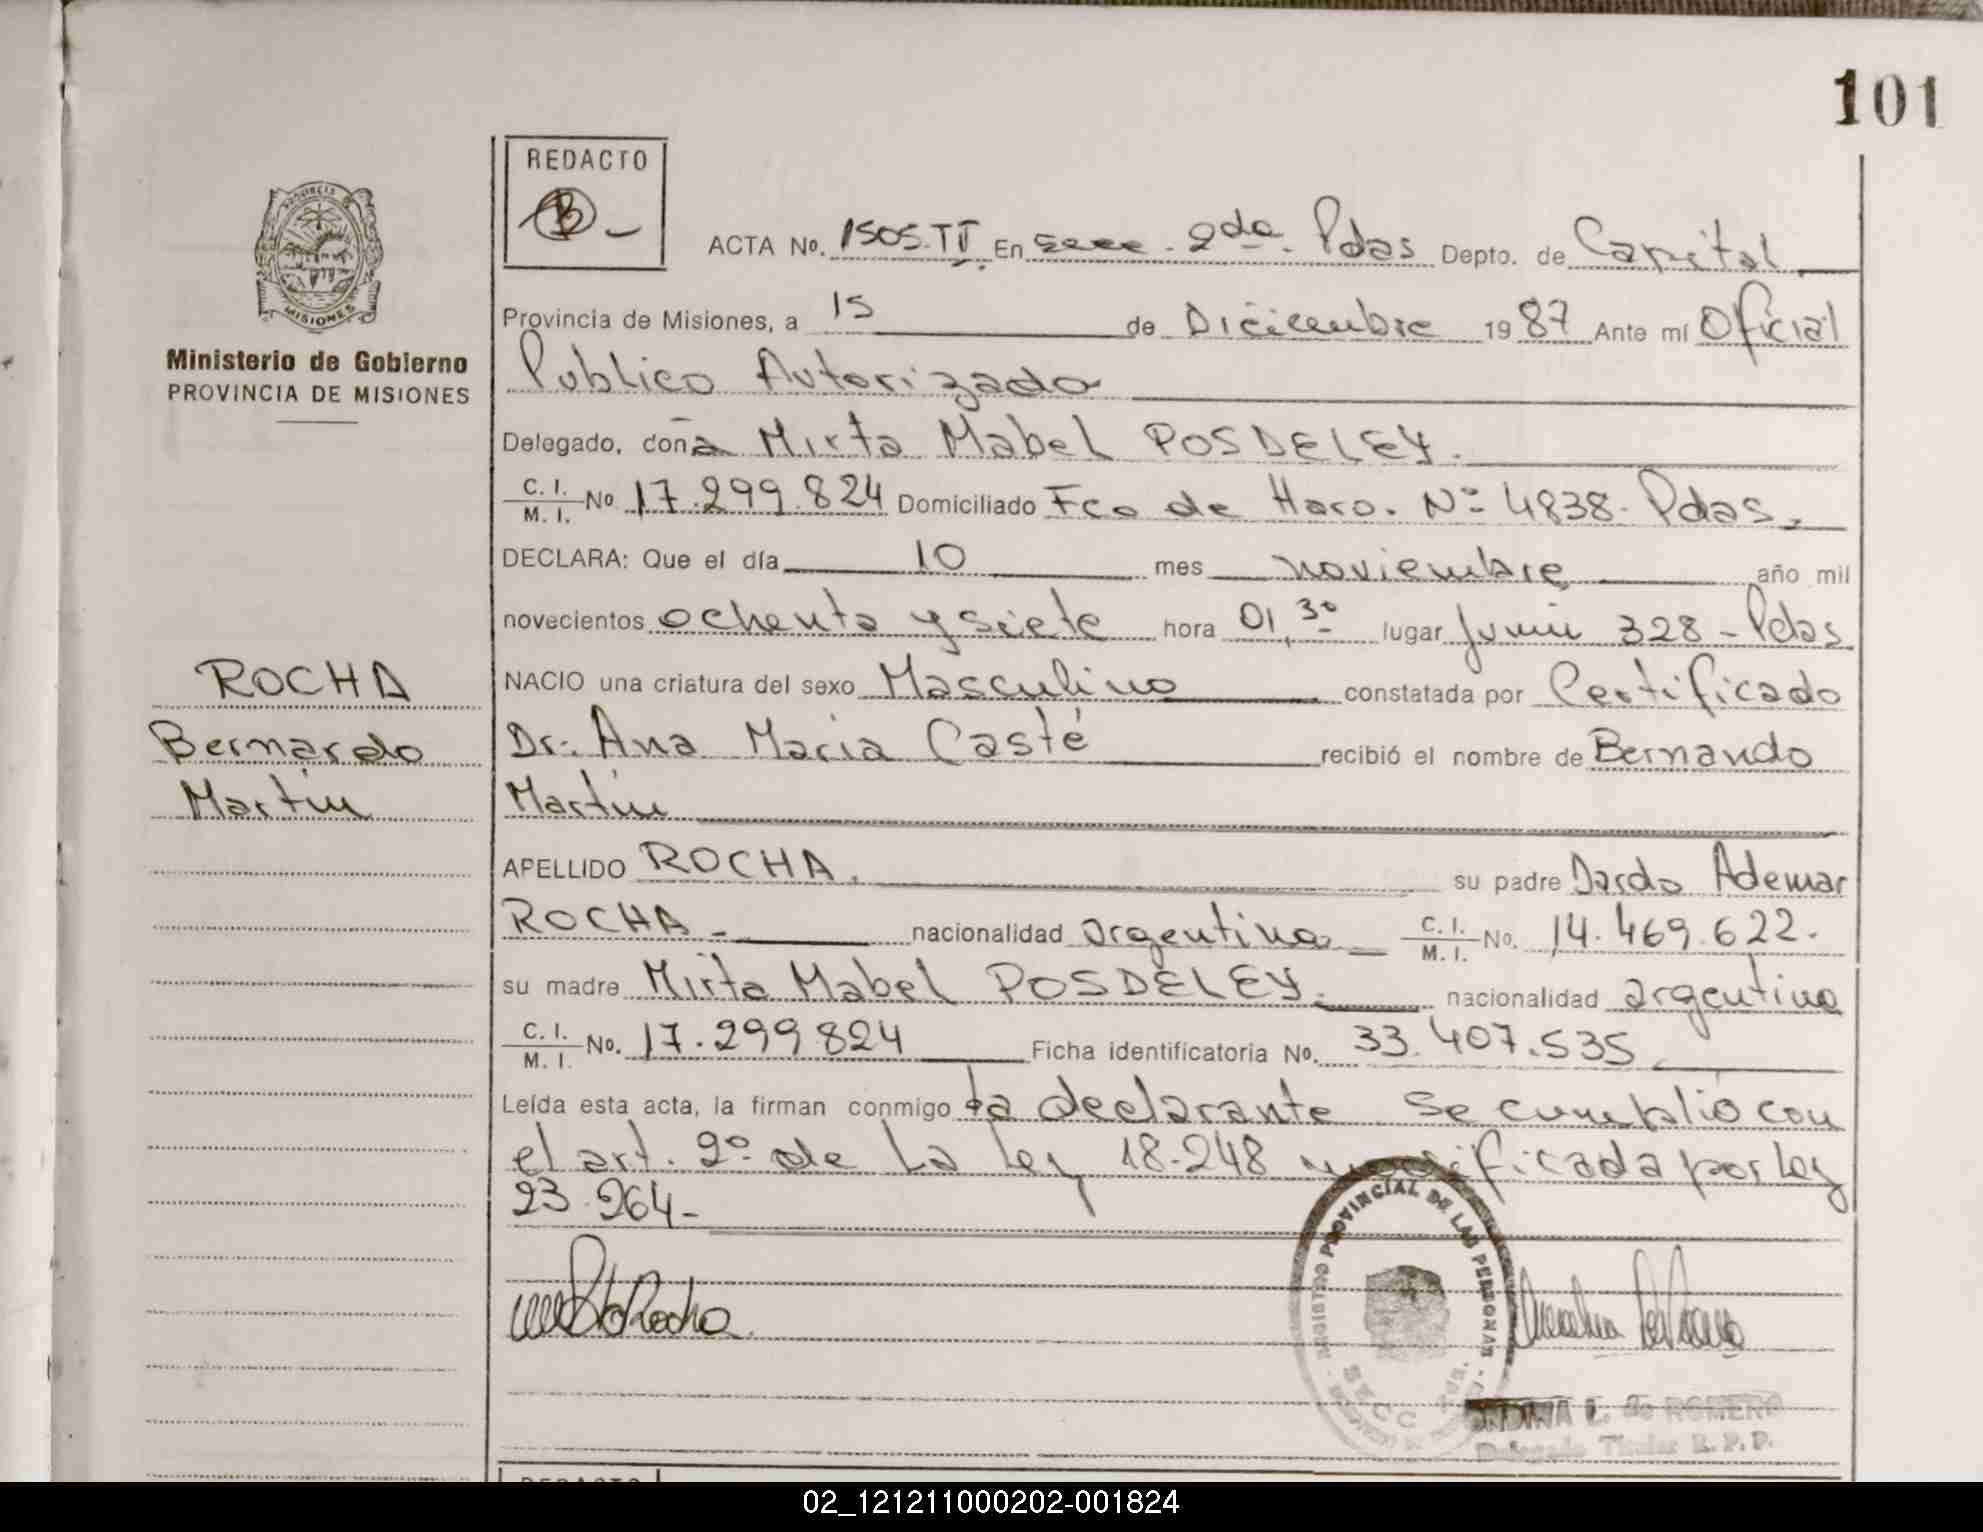 101
REDACTO
B -
ACTA No. 1505.TT En secc. 2da. Pdas Depto. de Capital
Provincia de Misiones, a 15 de Diciembre 1987 Ante mí Oficial
Publico Autorizado
Delegado, doña Mirta Mabel POSDELEY.
C. I. / M. I. No 17.299.824 Domiciliado Fco de Haro. Nº 4838. Pdas.
DECLARA: Que el día 10 mes noviembre año mil
novecientos ochenta y siete hora 01,30 lugar Junin 328 - Pdas
NACIO una criatura del sexo Masculino constatada por Certificado
Dr. Ana Maria Casté recibió el nombre de Bernando
Martin
APELLIDO ROCHA. su padre Dardo Ademar
ROCHA - nacionalidad argentina C. I. / M. I. No. 14.469.622.
su madre Mirta Mabel POSDELEY. nacionalidad argentina
C. I. / M. I. No. 17.299.824 Ficha identificatoria No. 33.407.535
Leída esta acta, la firman conmigo la declarante Se cumplió con
el art. 2º de la ley 18.248 modificada por ley
23.264-
Rocha
REGISTRO PROVINCIAL DE LAS PERSONAS
SECC
L. de ROMERO
Delegado Titular R. P. P.
PROVINCIA
MISIONES
Ministerio de Gobierno
PROVINCIA DE MISIONES
ROCHA
Bernardo
Martin
REDACTO
02_121211000202-001824